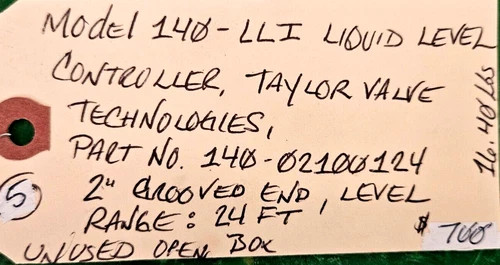 Model 140-LLI LIQUID LEVEL
CONTROLLER, TAYLOR VALVE
TECHNOLOGIES,
PART NO. 140-02100124
2" GROOVED END, LEVEL
RANGE: 24 FT
UN/USED OPEN BOX
5
$ 700
16.40 Lbs